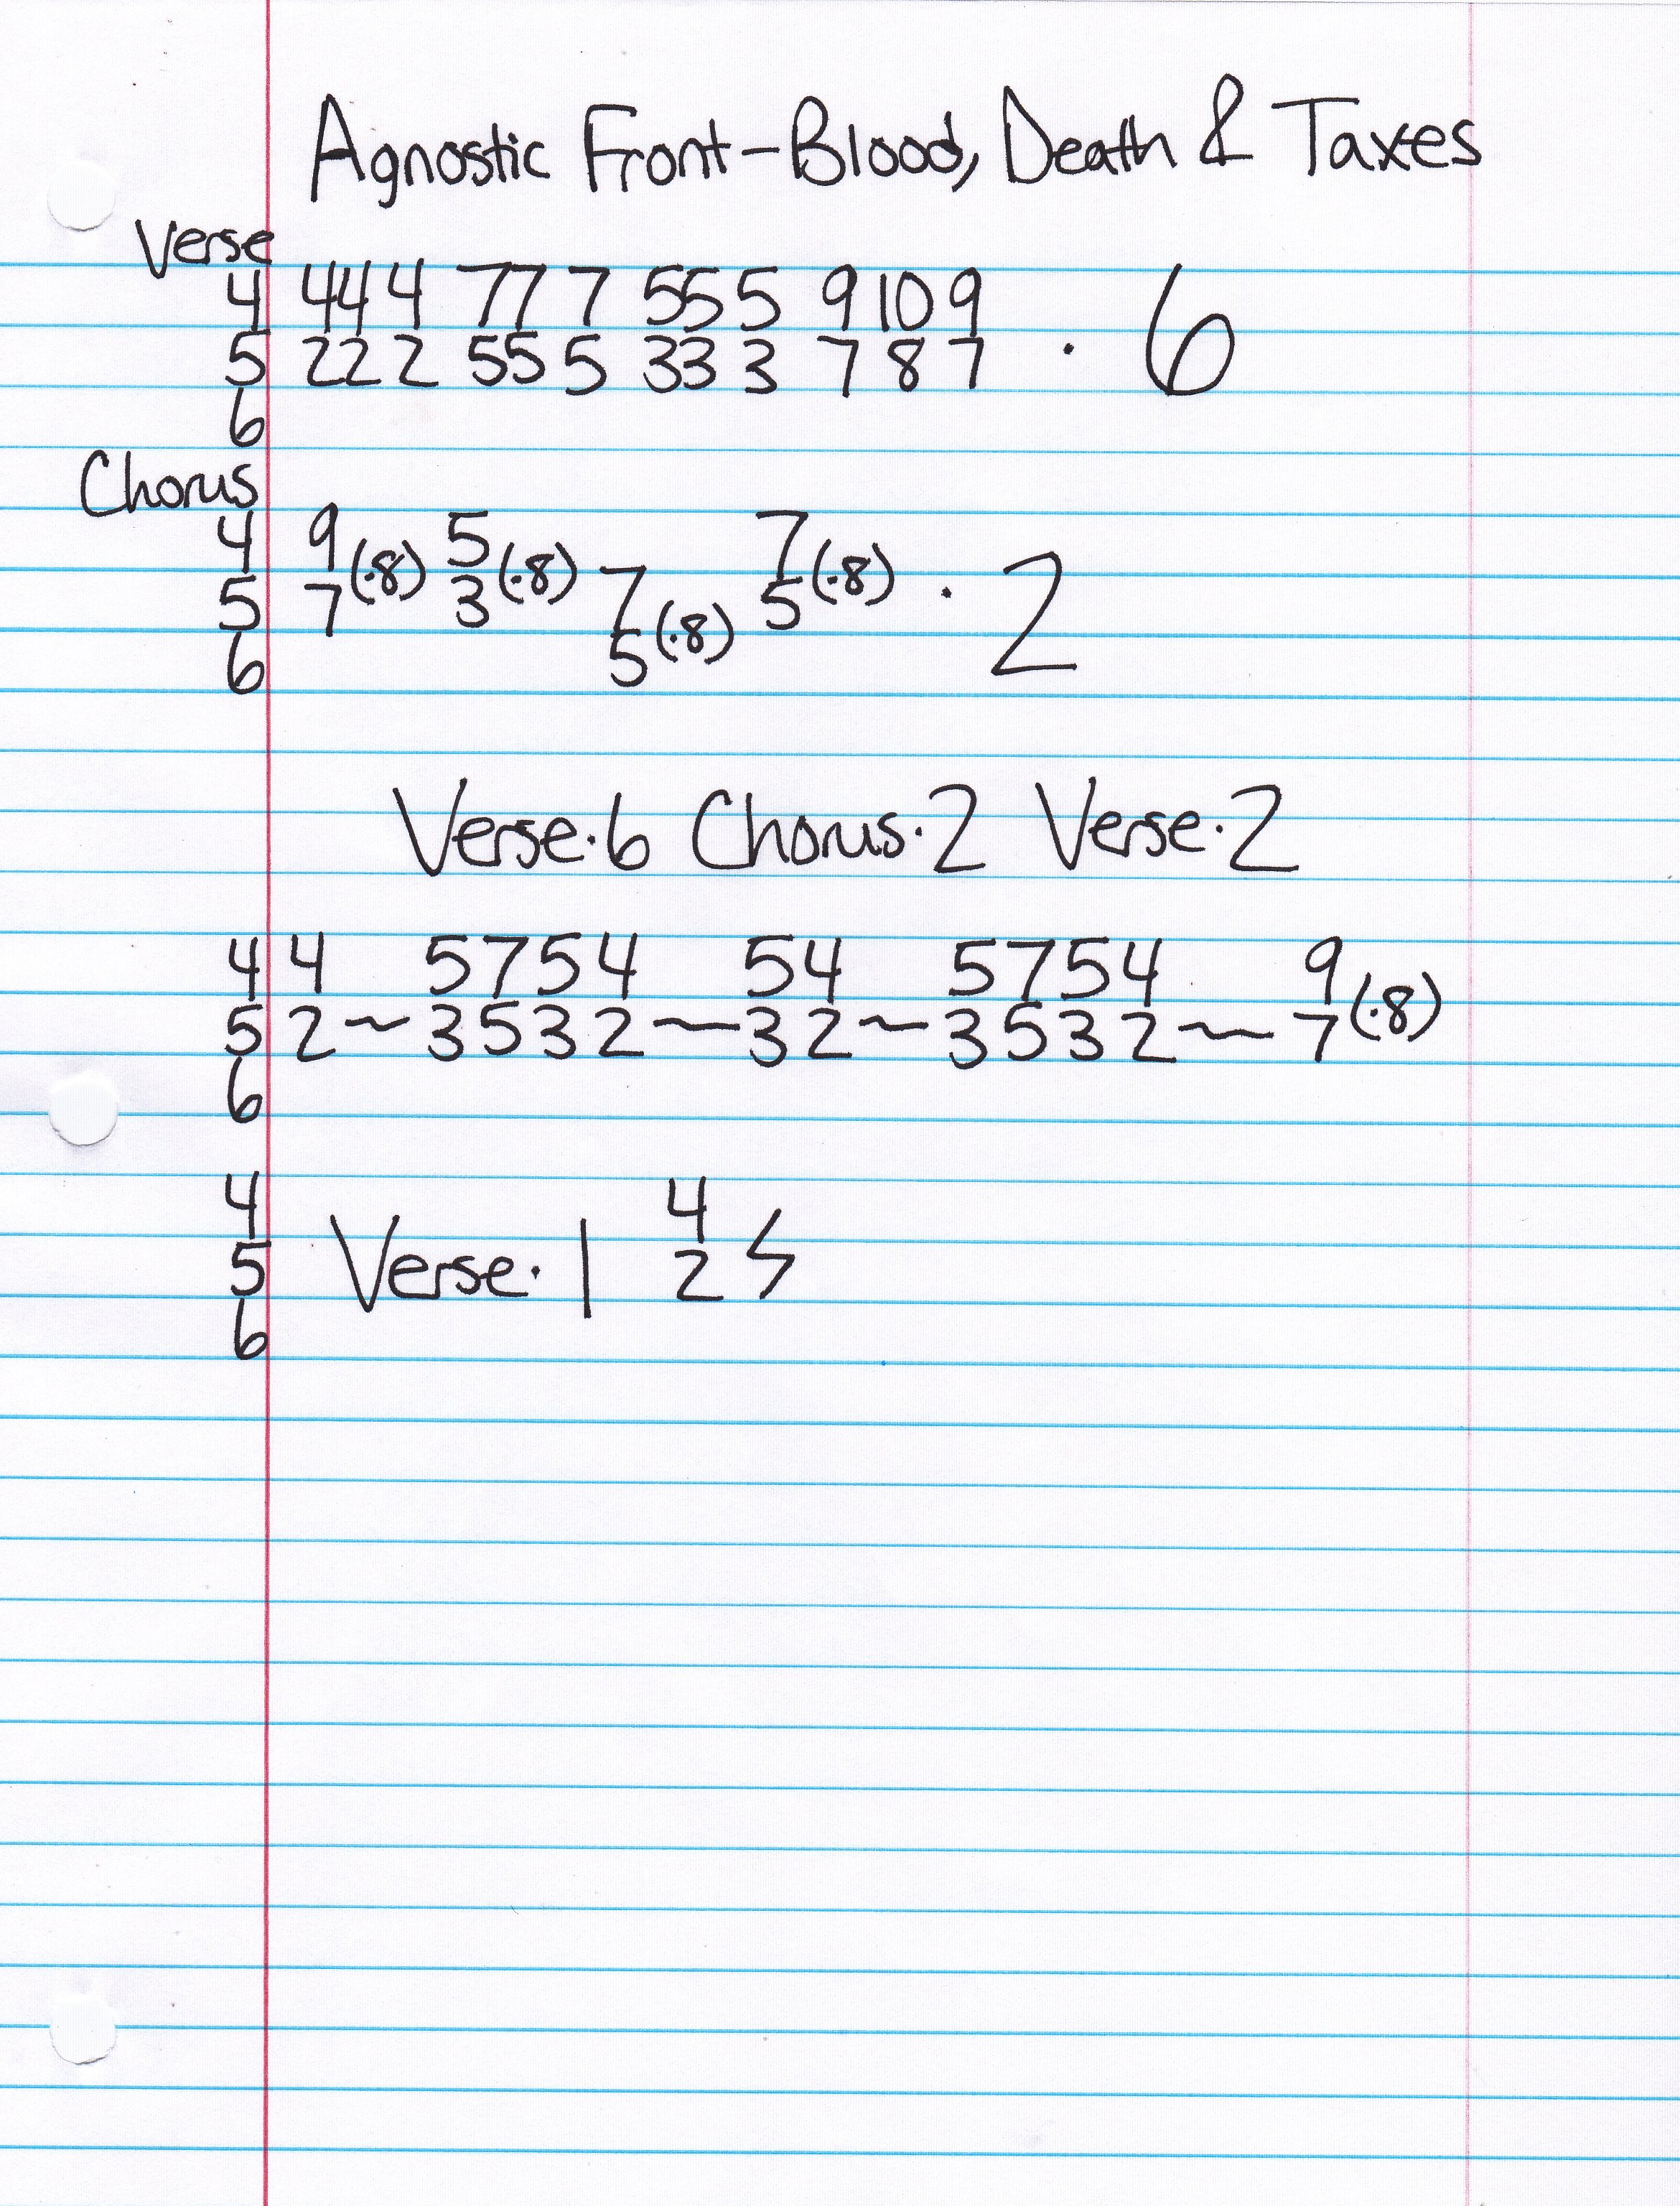 Agnostic Front-Blood, Death & Taxes
Verse
4 444 777 555 9 10 9
5 222 555 333 7 8 7 · 6
6
Chorus
4 9 5 7
5 7(·8) 3(·8) 7 5(·8) · 2
6 5(·8)
Verse·6 Chorus·2 Verse·2
4 4 5754 54 5754 9
5 2~3532~32~3532~7(·8)
6
4 4
5 Verse·1 2 ϟ
6